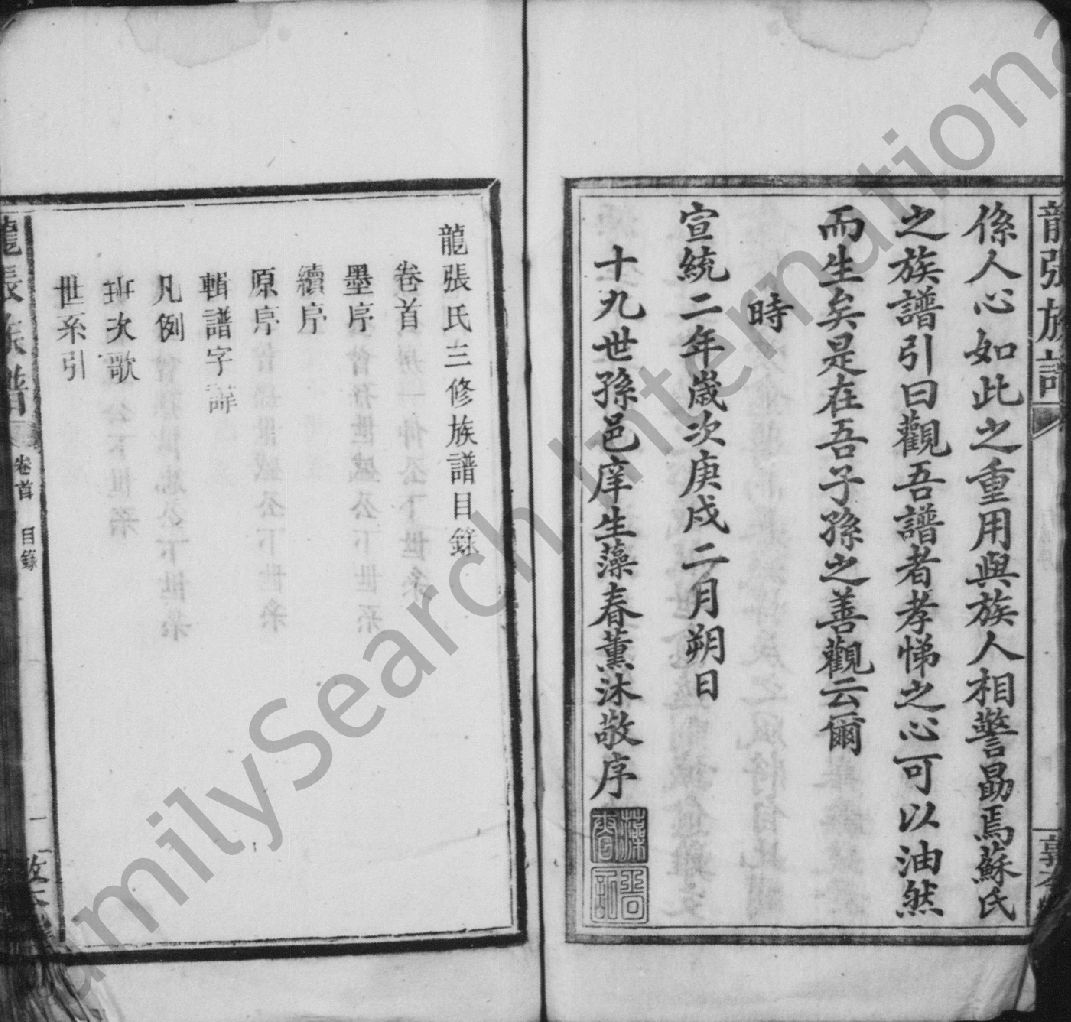 龍張族譜
係人心如此之重用與族人相警勗焉蘇氏
之族譜引曰觀吾譜者孝悌之心可以油然
而生矣是在吾子孫之善觀云爾
時
宣統二年歲次庚戌二月朔日
十九世孫邑庠生藻春薰沐敬序
藻春
龍張氏三修族譜目錄
卷首
墨序
續序
原序
輯譜字諱
凡例
班次歌
世系引
龍張族譜
卷首 目錄
一
FamilySearch International